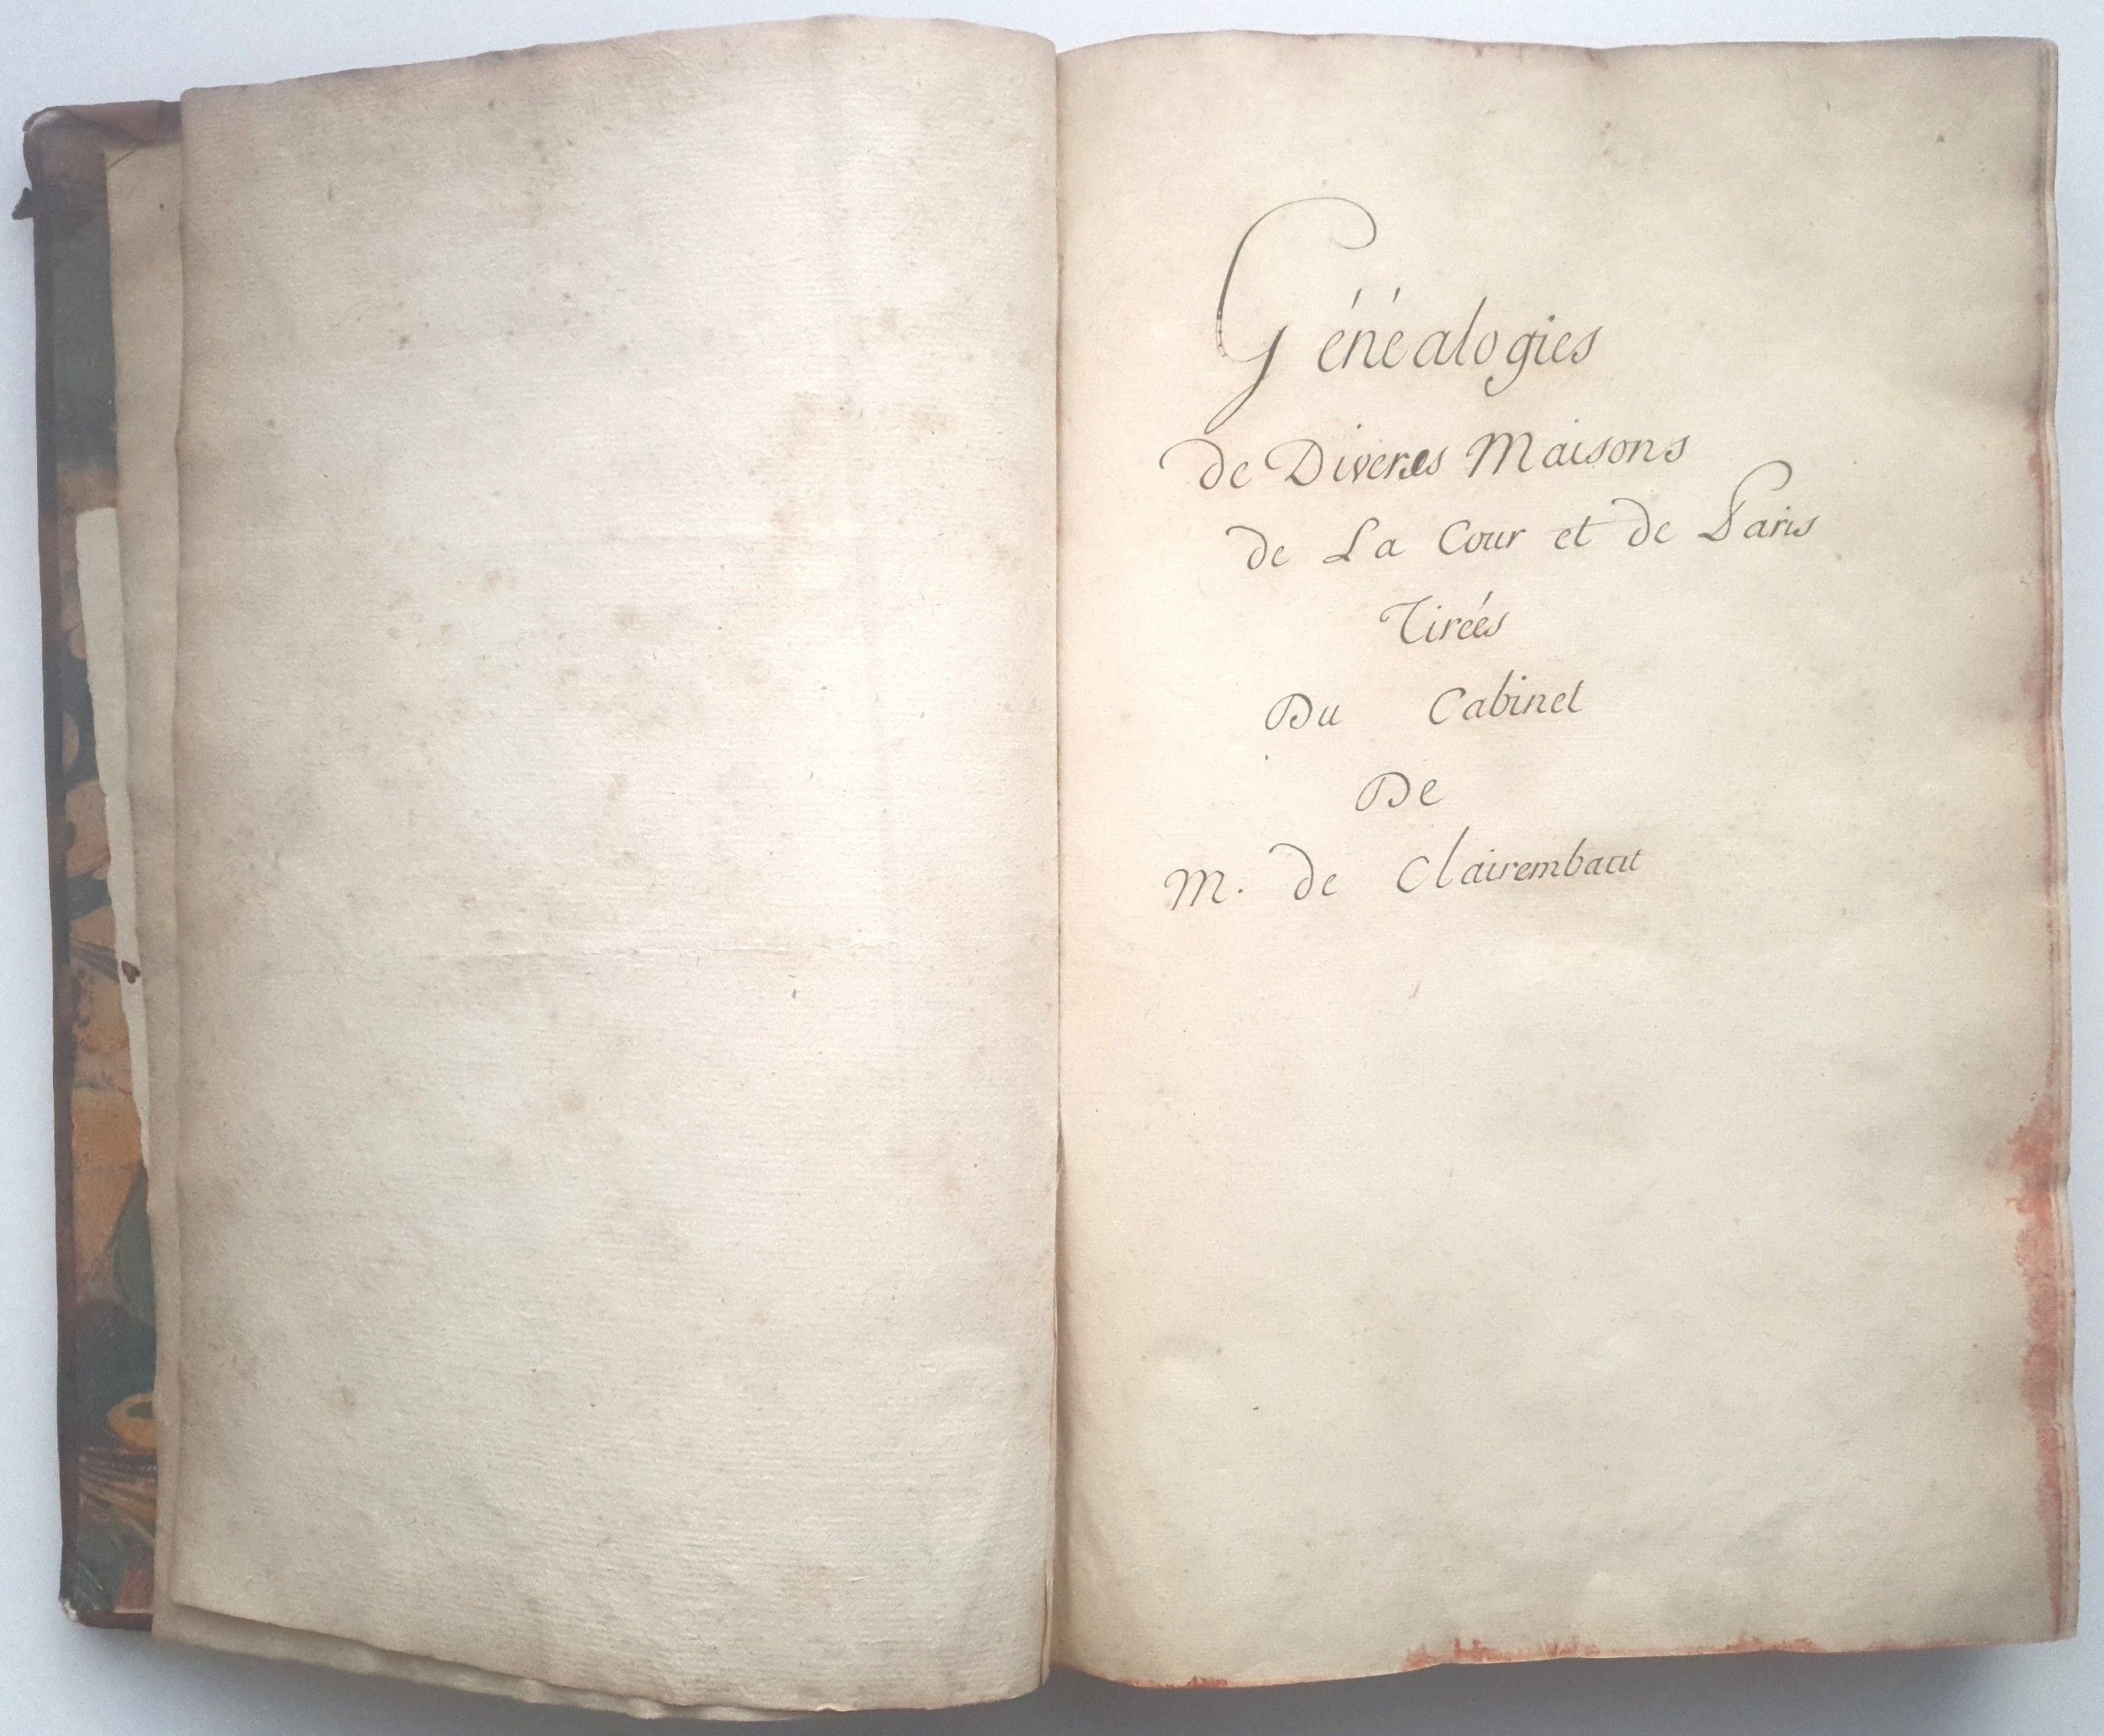 Généalogies
de Diverses Maisons
de La Cour et de Paris
Tirées
Du Cabinet
De
M. de Clairembaut